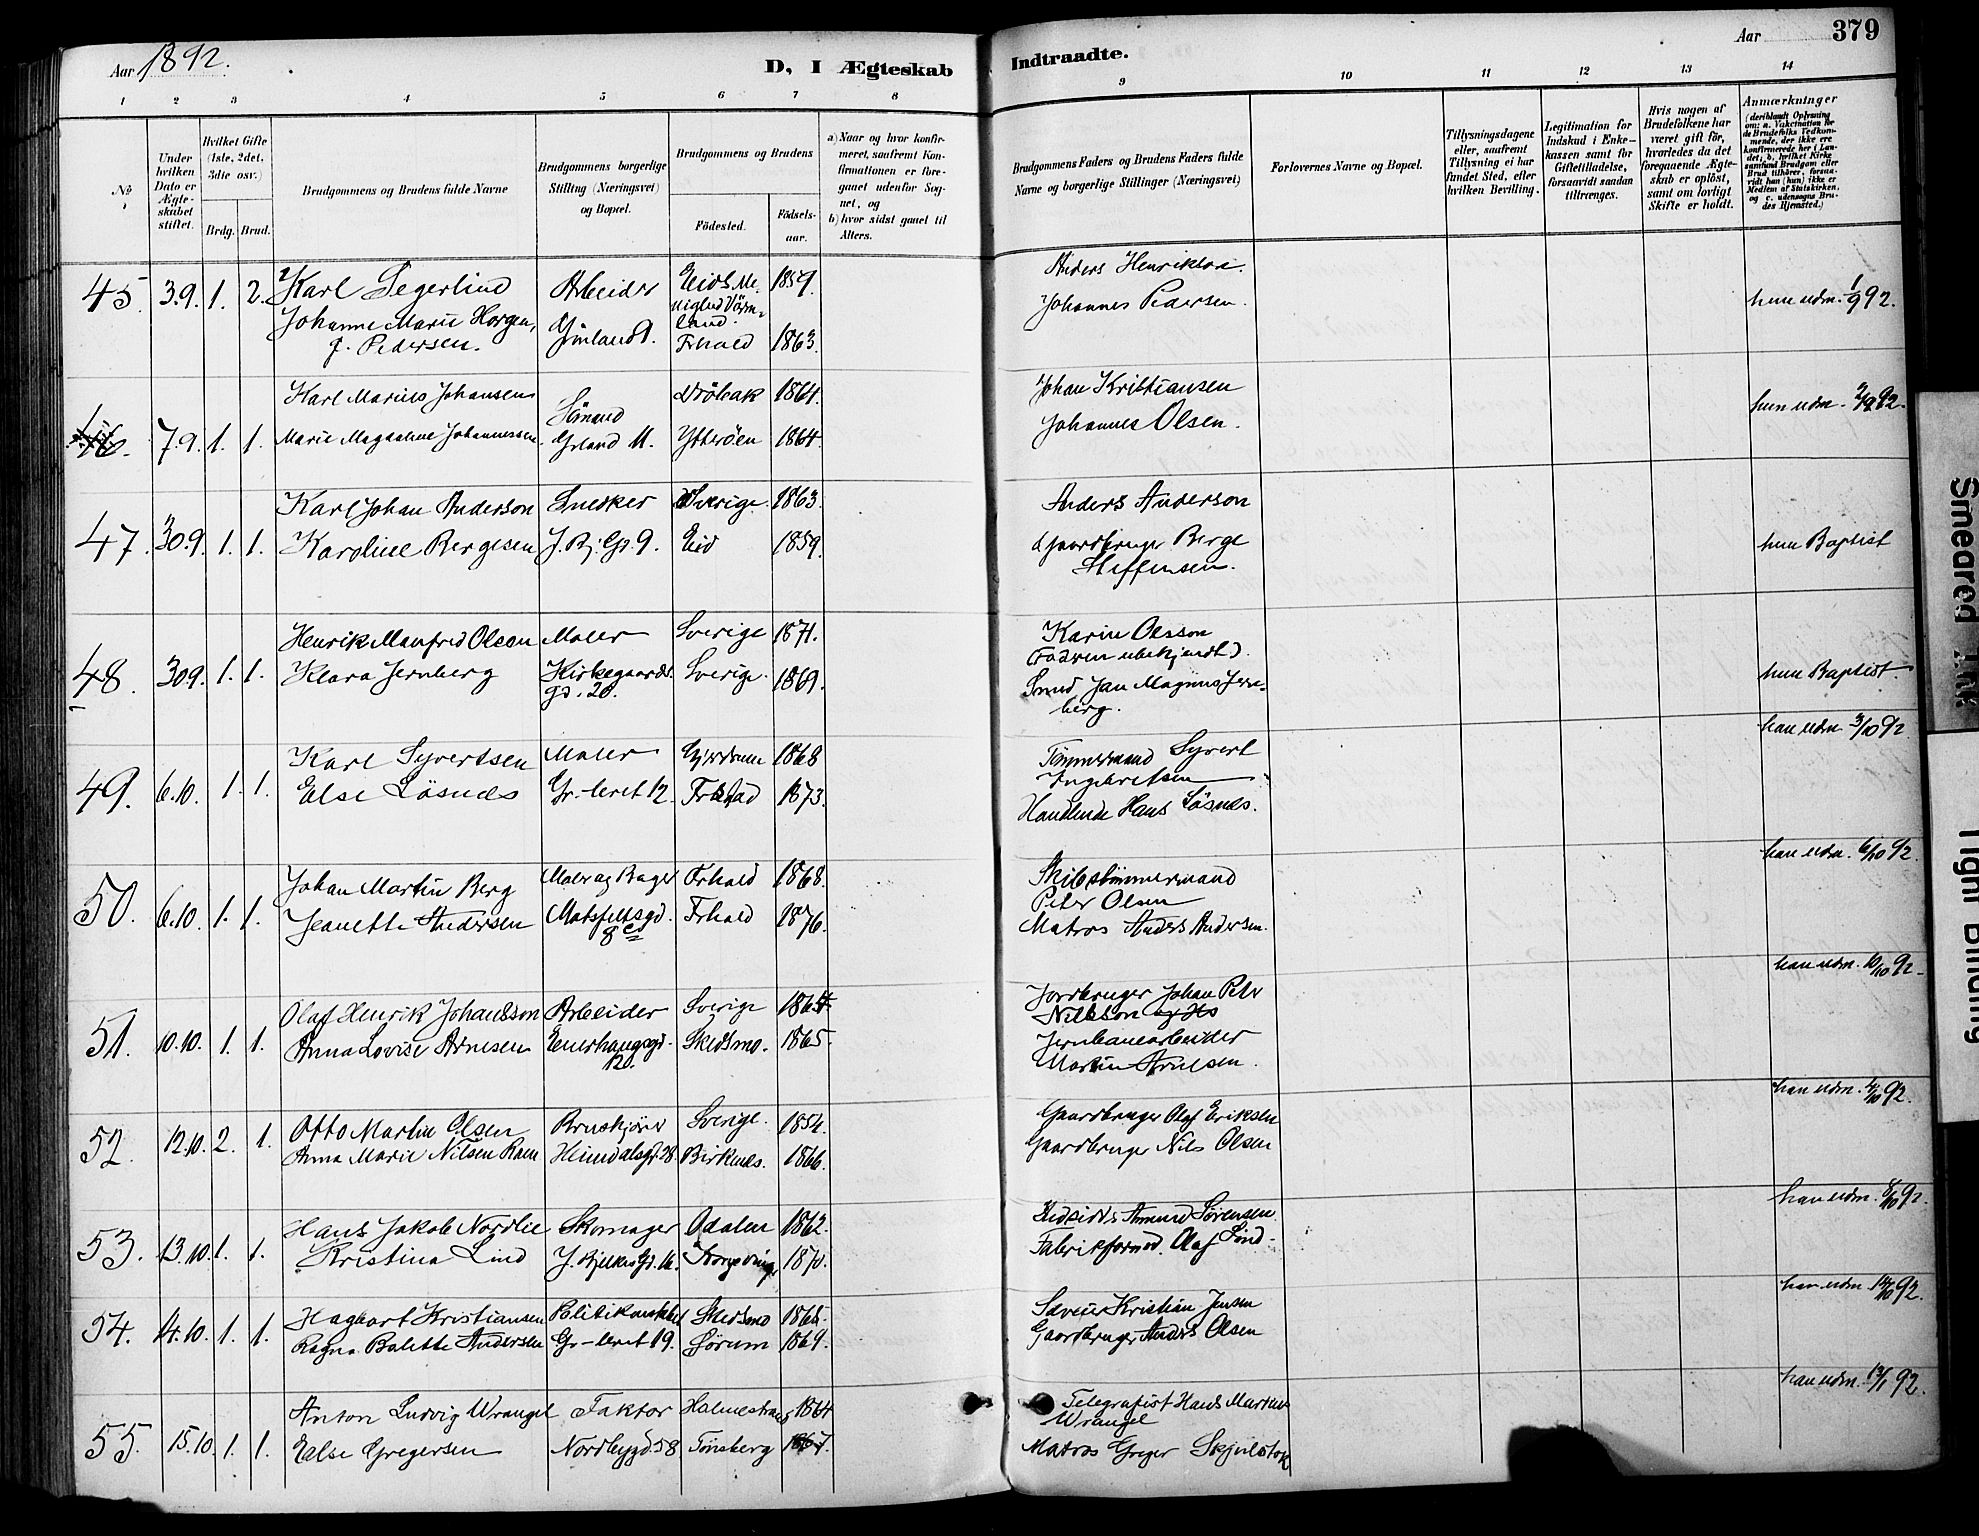 Aar 1892.
D, I Ægteskab
Indtraadte.
Aar
379
1 2 3 4 5 6 7 8
9 10 11 12 13 14
No
Under hvilken Dato er Ægteskabet stiftet.
Hvilket Gifte (1ste, 2det, 3die osv.)
Brdg. Brud.
Brudgommens og Brudens fulde Navne
Brudgommens borgerlige Stilling (Næringsvei) og Bopæl.
Brudgommens og Brudens
Fødested.
Fødselsaar.
a) Naar og hvor konfirmeret, saafremt Konfirmationen er foregaaet udenfor Sognet, og
b) hvor sidst gaaet til Alters.
Brudgommens Faders og Brudens Faders fulde Navne og borgerlige Stillinger (Næringsvei)
Forlovernes Navne og Bopæl.
Tillysningsdagene eller, saafremt Tillysning ei har fundet Sted, efter hvilken Bevilling.
Legitimation for Indskud i Enkekassen samt for Giftetilladelse, forsaavidt saadan tiltrænges.
Hvis nogen af Brudefolkene har været gift før, hvorledes da det foregaaende Ægteskab er opløst, samt om lovligt Skifte er holdt.
Anmærkninger
(deriblandt Oplysning om: a. Vakcination for de Brudefolks Vedkommende, der ikke ere konfirmerede her i Landet; b. hvilket Kirkesamfund Brudgom eller Brud tilhører, forsaavidt han (hun) ikke er Medlem af Statskirken, og c. udensogns Brudes Hjemsted.)
45 3.9. 1. 2. Karl Segerlind Arbeider 1859. Anders
Johanne Marie Horgen, Johannes Pedersen. hun udm. 1/9 92.
f. Pedersen. Frhald 1863.
Karl Marius Johansen Drøbak 1861. Johan Kristiansen
46. 7.9. 1. 1. Marie Magdalene Johannessen Sømand Grland 11. Ytterøen 1864. Johannes Olsen. hun udm. 92.
Karl Johan Anderson Snedker Sverige 1863. Anders Anderson
47. 30.9. 1. 1. Karoline Bergesen J. Bj. Gd. 9. Eid 1859. Gaardbruger Berge hun Baptist
Steffensen.
Henrik Manfred Olsen Maler Sverige 1871. Karin Olsson
(Faderen ubekjendt).
48. 30.9. 1. 1. Klara Jernberg Kirkegaards Gd. 20. Sverige 1869. Smed Jan Magnus Jernberg. hun Baptist
Karl Syvertsen Maler Gjerdrum 1868 Tømmermand Syvert Ingebretsen han udm. 3/10 92
49. 6.10. 1. 1. Else Løsnes Gr-leret 12. Frstad 1873. Handlende Hans Løsnes.
Johan Martin Berg Maler og Bager Frhald 1868. Skibstømmermand Peter Olsen han udm. 6/10 92.
50. 6.10. 1. 1. Jeanette Andersen Frhald 1876. Matros Anders Andersen.
Olaf Henrik Johansson Arbeider Sverige Jordbruger Johan Peter Nilsson han udm. 10/10 92.
51. 10.10. 1. 1. Anna Lovise Arnesen Enerhaugsgd. 120. Skedsmo. 1865. Jernbanearbeider Martin Arnesen.
Otto Martin Olsen Sverige. 1854. Gaardbruger Olaf Eriksen han udm. 4/10 92.
52. 12.10. 2. 1. Anna Marie Nilsen Heimdalsgd. 28. Birkenes. 1866. Gaardbruger Nils Olsen
Hans Jakob Nordlie Skomager Odalen 1862. Sørensen. han udm. 8/10 92.
53. 13.10. 1. 1. Kristina Lind J. Bjelkes Gd. 11. 1870. Fabrikformd. Olaf Lind.
Hagbart Kristiansen Politikonstabel Skedsmo 1865. Kristian Jensen han udm. 92.
54. 14.10. 1. 1. Ragna Bolette Andersen Gr-leret 19. Sørum 1869. Gaardbruger Anders Olsen
Anton Ludvig Wrangel Faktor Holmestrand 1864 Telegrafist Hans Martin Wrangel han udm. 92.
55. 15.10. 1. 1. Else Gregersen Nordbygd. 58. Tønsberg 1867. Matros Greger Skjulstok
Smeared Ink
Tight Binding